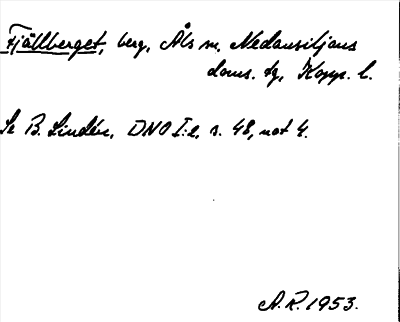 Fjällberget, berg, Åls sn, Nedansiljans
doms. tg, Kopp. l.
Se B. Lindén, DNO I:2, s. 48, not 4.
A.R. 1953.